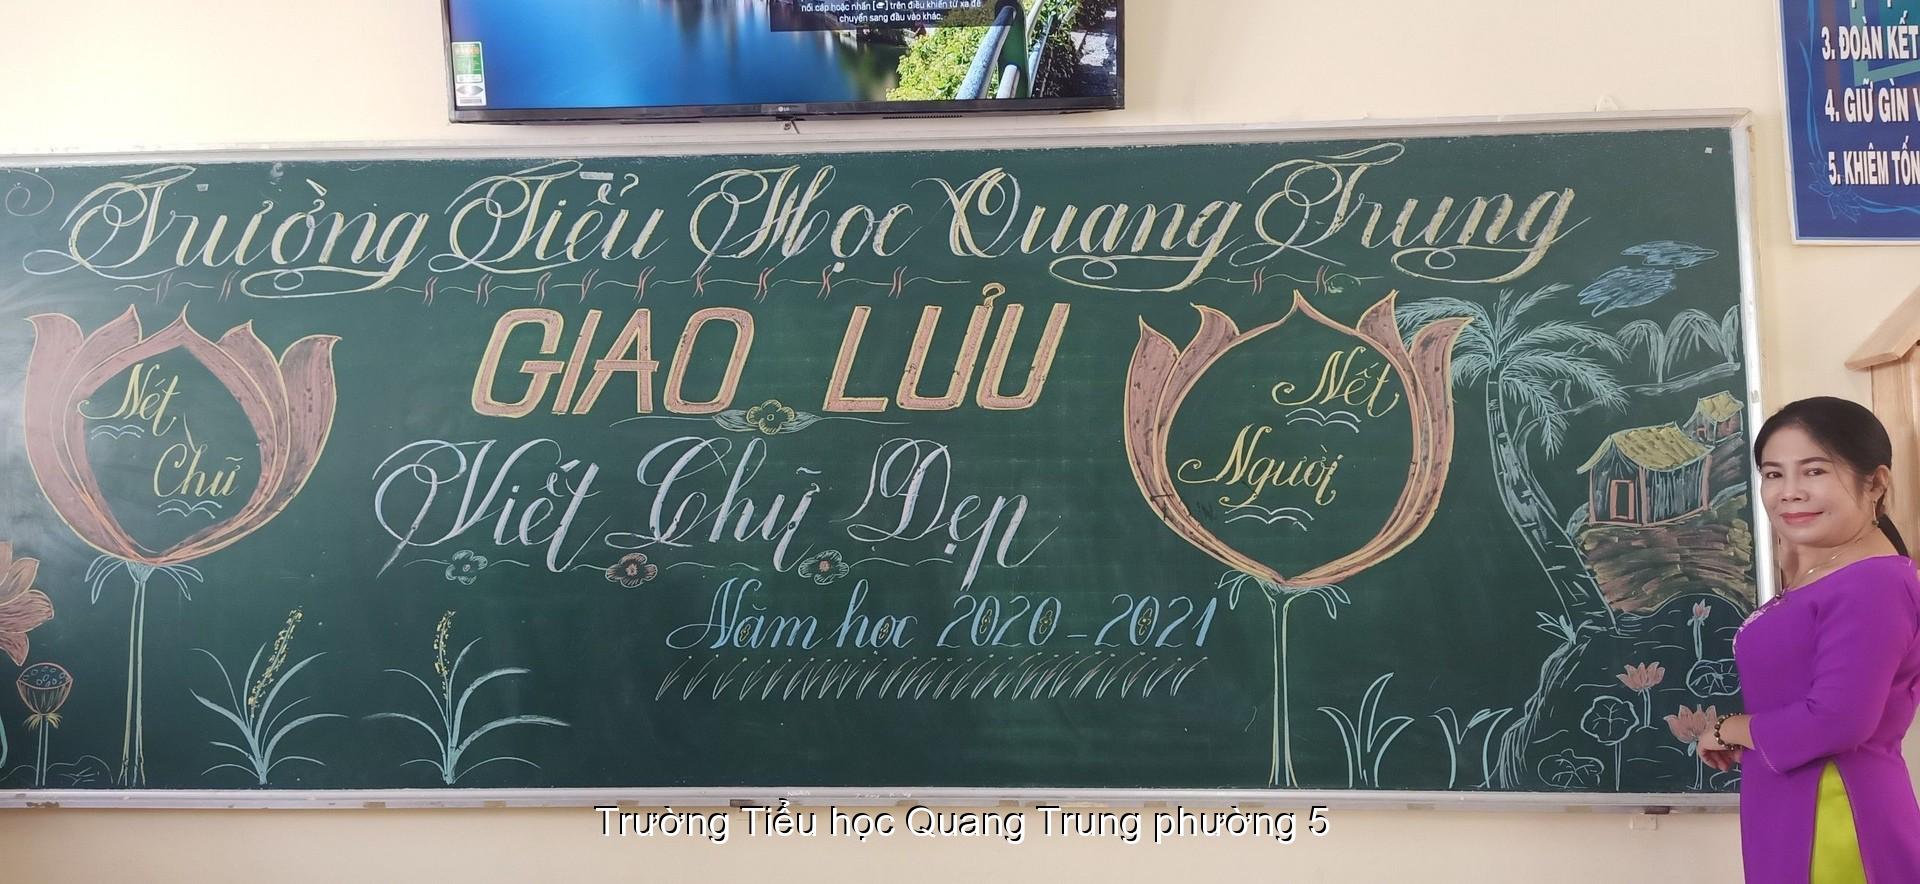 nối cáp hoặc nhấn [ ] trên điều khiển từ xa để
chuyển sang đầu vào khác.
LG
3. ĐOÀN KẾT
4. GIỮ GÌN V
5. KHIÊM TỐN
Trường Tiểu Học Quang Trung
GIAO LƯU
Nét
Chữ
Nết
Người
Viết Chữ Đẹp
Năm học 2020-2021
Trường Tiểu học Quang Trung phường 5